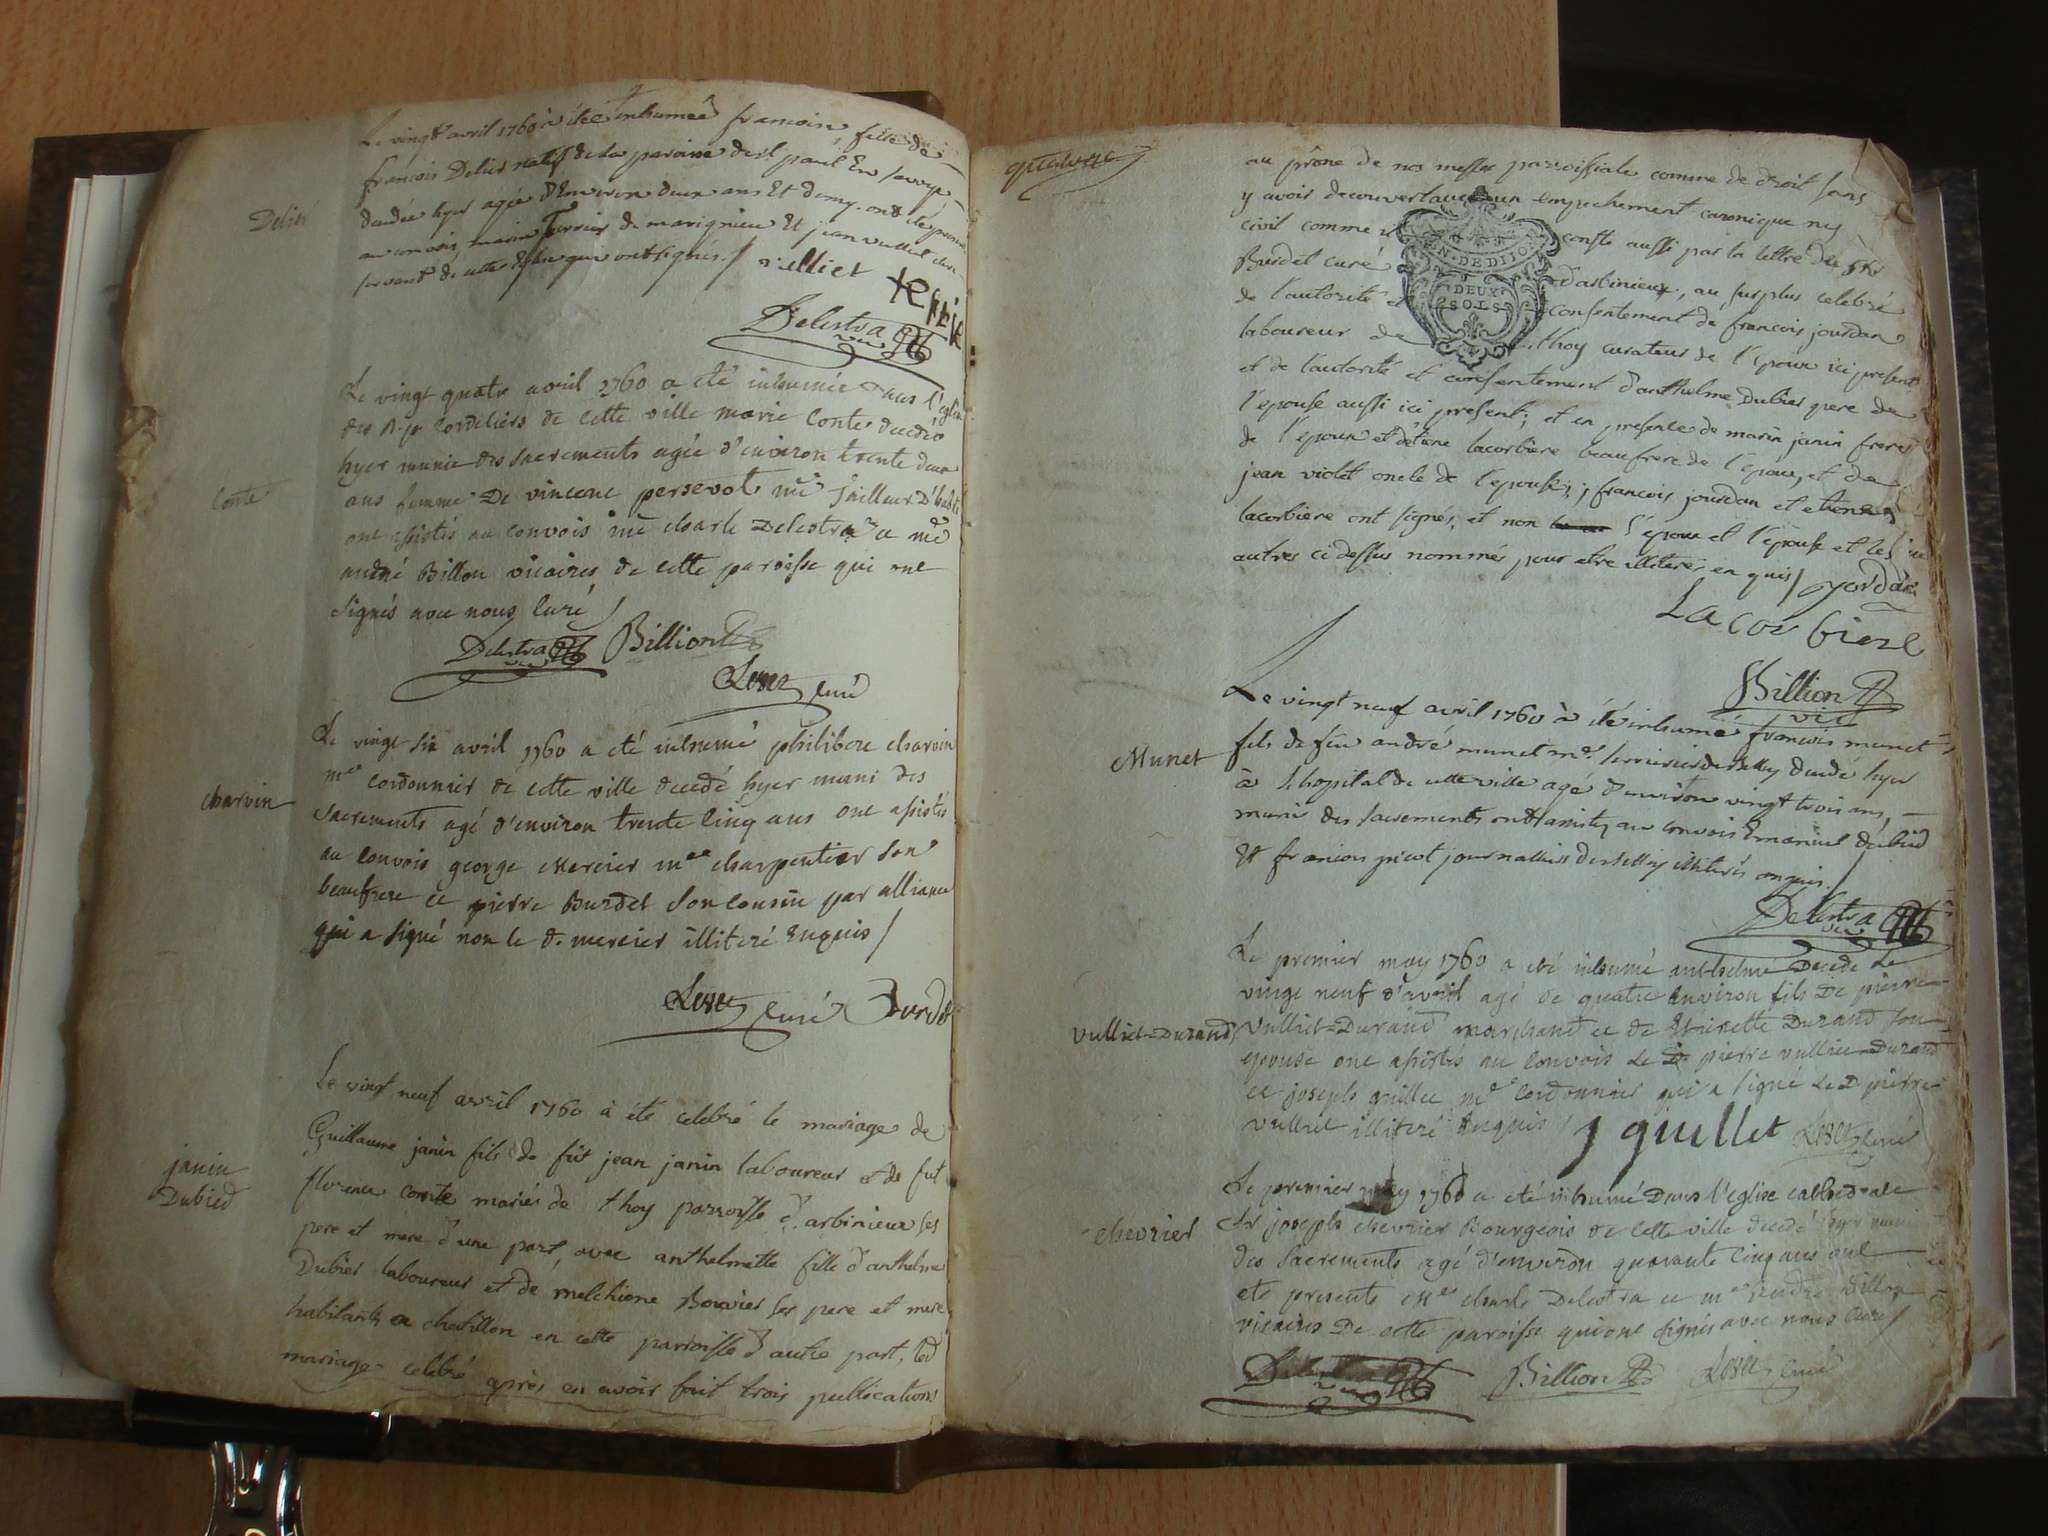 Le vingt avril 1760 à été inhumée francoise fille de
françois Delier natif de la paroisse de st paul En
decedée hyer agée d'Environ deux ans Et demy. ont été presens
au convois, marin de marignieu Et jean vulliet
servant de cette Eglise qui ont signés. / vulliet
Delestra vic
Delier
Le vingt quatre avril 1760 a été inhumée dans l'eglise
des R. p. Cordeliers de cette ville marie Conte decedée
hyer munie des sacrements agée d'environ trente deux
ans femme De vincent persevot me Tailleur D'habits
ont assistés au convois mre charle Delestra et mre
andré Billon vicaires de cette paroisse qui ont
signés avec nous Curé /
Conte
Delestra vic Billion
curé
Le vingt six avril 1760 a été inhumé philibert charvin
mre cordonnier de cette ville decedé hyer muni des
sacrements agé d'environ trente cinq ans ont assistés
au convois george Mercier mre charpentier son
beaufrere et pierre Burdet son cousin par alliance
qui a signé non le d. mercier illiteré Enquis /
charvin
curé Bourdet
Le vingt neuf avril 1760 à été celebré le mariage de
Guillaume janin fils de fût jean janin laboureur et de fut
florence comte mariés de thoy parroisse d'arbinieux ses
pere et mere d'une part, avec anthelmette fille d'anthelme
Dubier laboureur et de melchione Bouvier ses pere et mere
habitants a chatillon en cette parroisse d'autre part, led
mariage celebré après en avoir fait trois publications
janin
Dubied
quatorze
au prône de nos messes parroissiale comme de droit sans
y avoir decouvert aucun empechement canonique ny
civil comme il conste aussi par la lettre du Sr
Burdet curé d'arbinieux, au surplus celebré
de l'autorité et consentement de françois jourdan
laboureur de thoy curateur de l'epoux ici present
et de l'autorité et consentement d'anthelme Dubier pere de
l'epouse aussi ici present; et en presence de marin janin frere
de l'epoux et d'etiene lacorbiere beaufrere de l'epoux, et de
jean violet oncle de l'epouse; françois jourdan et etienne
lacorbiere ont signés, et non l'epoux et l'epouse et les
autres ci dessus nommés pour etre illiterés en quis / jordan
N. DE DIJON
DEUX
SOLS
Lacorbiere
Billion
vic
Le vingt neuf avril 1760 à été inhumé francois munet
fils de feu andré munet me. serrurier de belley decedé hyer
à l'hopital de cette ville agé d'environ vingt trois ans,
muni des sacrements ont assistez au convois Emanuel dubied
Et francois picot journalliers de belley illiterés enquis. /
Munet
Delestra vic
Le premier may 1760 a été inhumé anthelme Decedé Le
vingt neuf d'avril agé de quatre environ fils De pierre
Vulliet=Durand marchand et de Etienette Durand son
epouse ont assistés au convois Le D. pierre vulliet Durand
et joseph guillet me cordonnier qui a signé Le D. pierre
vulliet illiteré Enquis / J guillet curé
Vulliet=Durand
Le premier may 1760 a été inhumé Dans l'eglise cathedrale
Sr joseph chevrier Bourgeois de cette ville decedé hyer muni
des sacrements agé d'environ quarante cinq ans ont
eté presents mre charle Delestra et mre andré Billon
vicaires De cette paroisse qui ont signés avec nous Curé /
chevrier
Delestra vic Billion curé